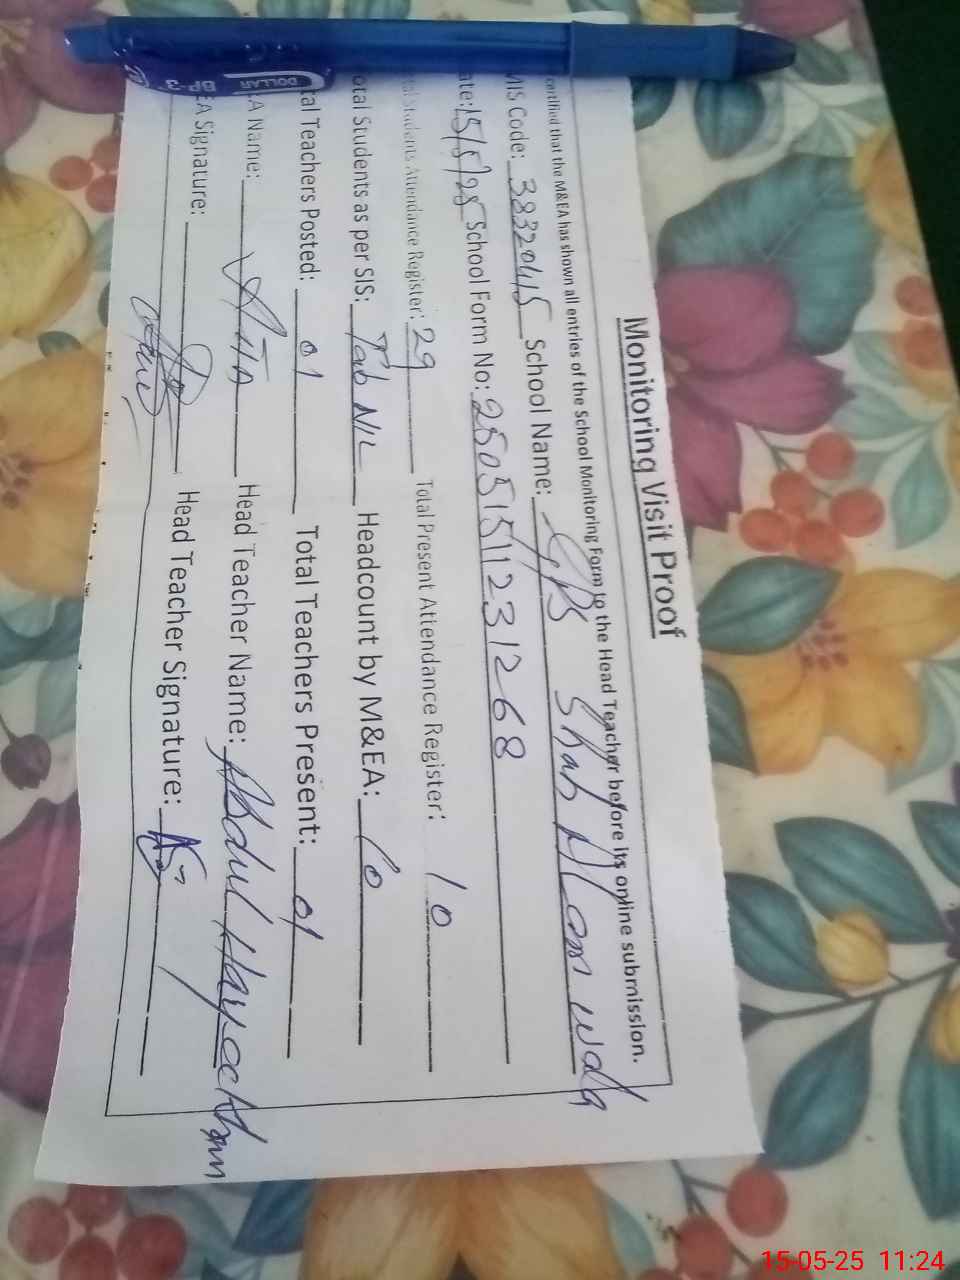 Monitoring Visit Proof
certified that the M&EA has shown all entries of the School Monitoring Form to the Head Teacher before its online submission.
MIS Code: 38320415 School Name: GPS Shah Alam wala
ate: 15/5/25 School Form No: 25051511231268
tal Students Attendance Register: 29 Total Present Attendance Register: 10
otal Students as per SIS: Tab NIL Headcount by M&EA: 10
tal Teachers Posted: 01 Total Teachers Present: 01
A Name: Head Teacher Name: Abdul Hayee
EA Signature: Head Teacher Signature:
DOLLAR
BP-3
15-05-25 11:24